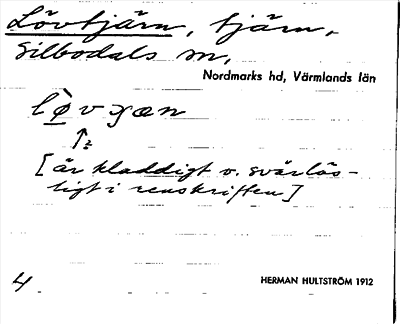 Lövtjärn, tjärn,
Silbodals sn,
Nordmarks hd, Värmlands län
lø̀vɣæn
↑?
[är kladdigt o. svårläs-
ligt i renskriften]
4
HERMAN HULTSTRÖM 1912